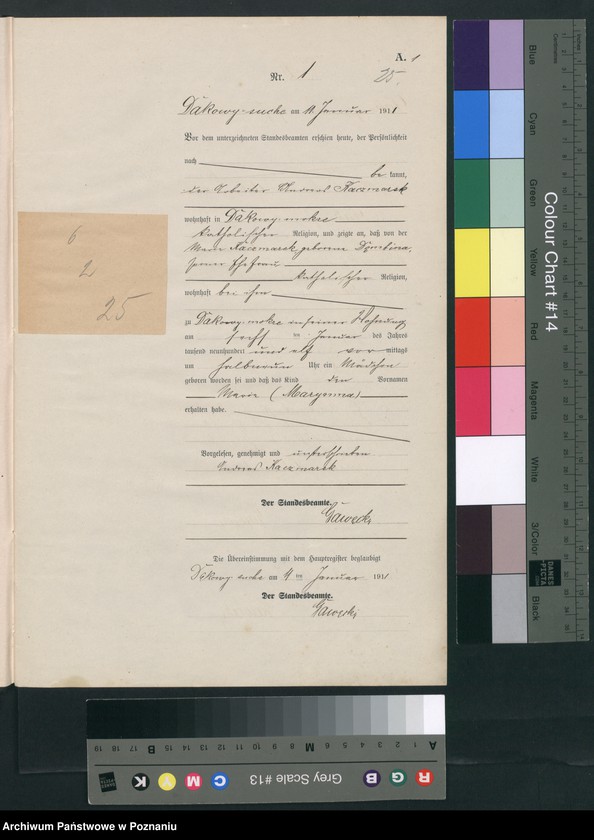 A. 1
Nr. 1
25.
Dakowy-suche am 11. Januar 1911
Vor dem unterzeichneten Standesbeamten erschien heute, der Persönlichkeit
nach be kannt,
der Arbeiter Andreas Kaczmarek
wohnhaft in Dakowy-mokre
katholischer Religion, und zeigte an, daß von der
Marie Kaczmarek geborene Dombina,
seiner Ehefrau
katholischer Religion,
wohnhaft bei ihm
zu Dakowy-mokre in seiner Wohnung
am sechs ten Januar des Jahres
tausend neunhundert und elf vor mittags
um Uhr ein Mädchen
geboren worden sei und daß das Kind den Vornamen
Marie (Maryanna)
erhalten habe.
Vorgelesen, genehmigt und unterschrieben
Andreas Kaczmarek
Der Standesbeamte.
Die Übereinstimmung mit dem Hauptregister beglaubigt
Dakowy suche am 11 ten Januar 1911
Der Standesbeamte.
6
2
25
Colour Chart #14
Blue
Cyan
Green
Yellow
Red
Magenta
White
3/Color
Black
DANES
-PICTA
Grey Scale #13
R G B
C M Y K
A M B
Archiwum Państwowe w Poznaniu